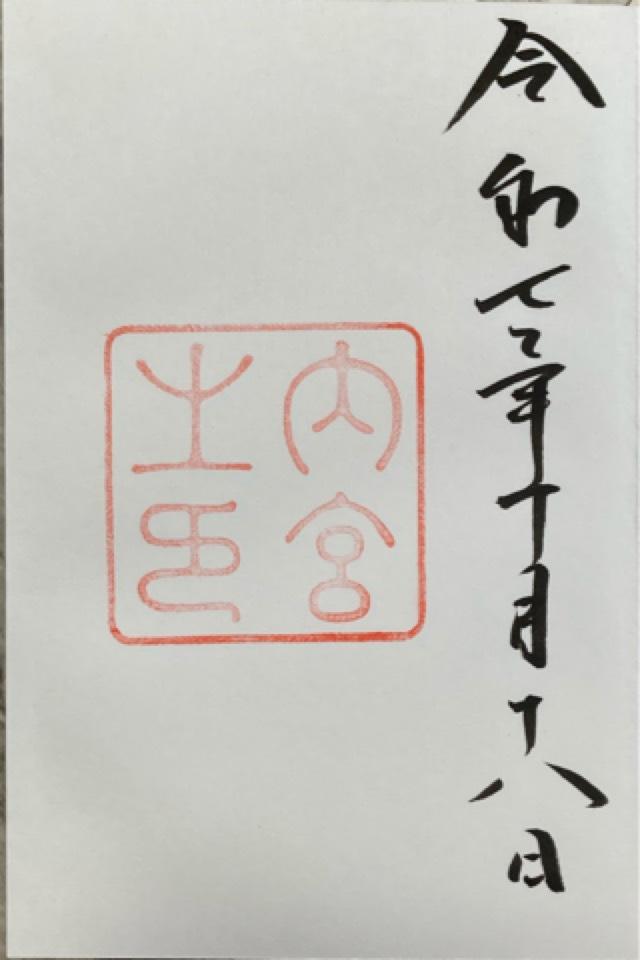 令和七年十月十八日
内宮
之印